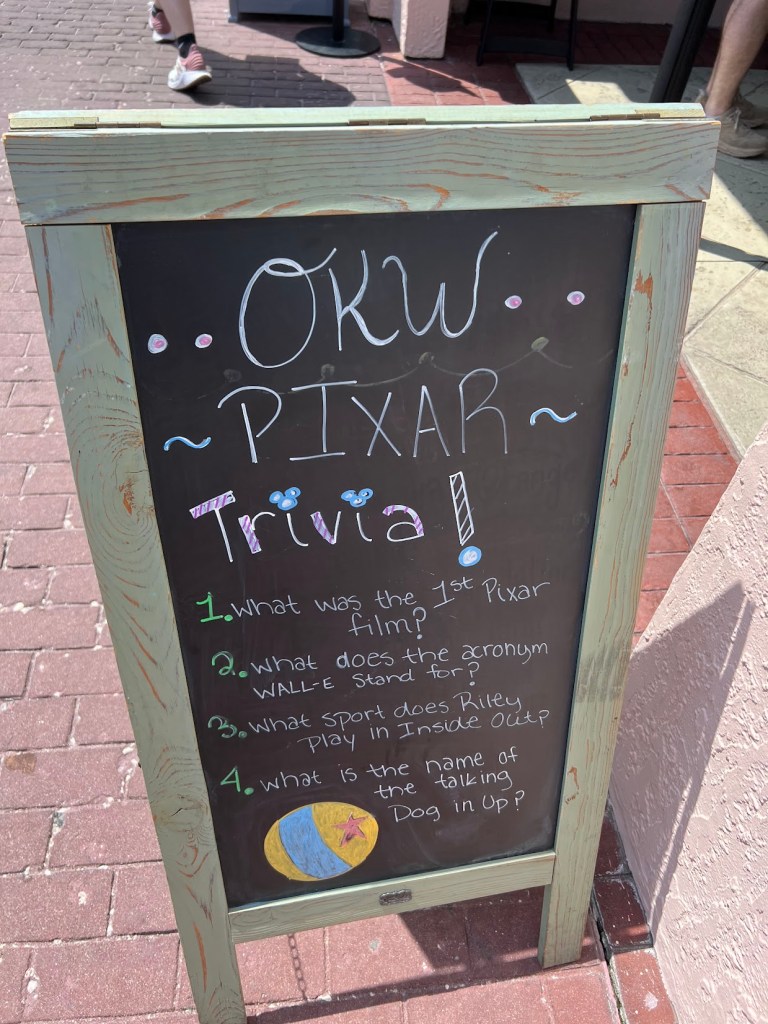 OKW
~PIXAR~
Trivia!
1. What was the 1st Pixar
film?
2. What does the acronym
WALL-E Stand for?
3. What sport does Riley
play in Inside Out?
4. What is the name of
the talking
Dog in Up?